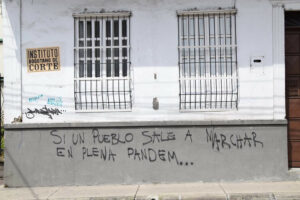 INSTITUTO
BOGOTANO DE
CORTE
SI UN PUEBLO SALE A MARCHAR
EN PLENA PANDEM...